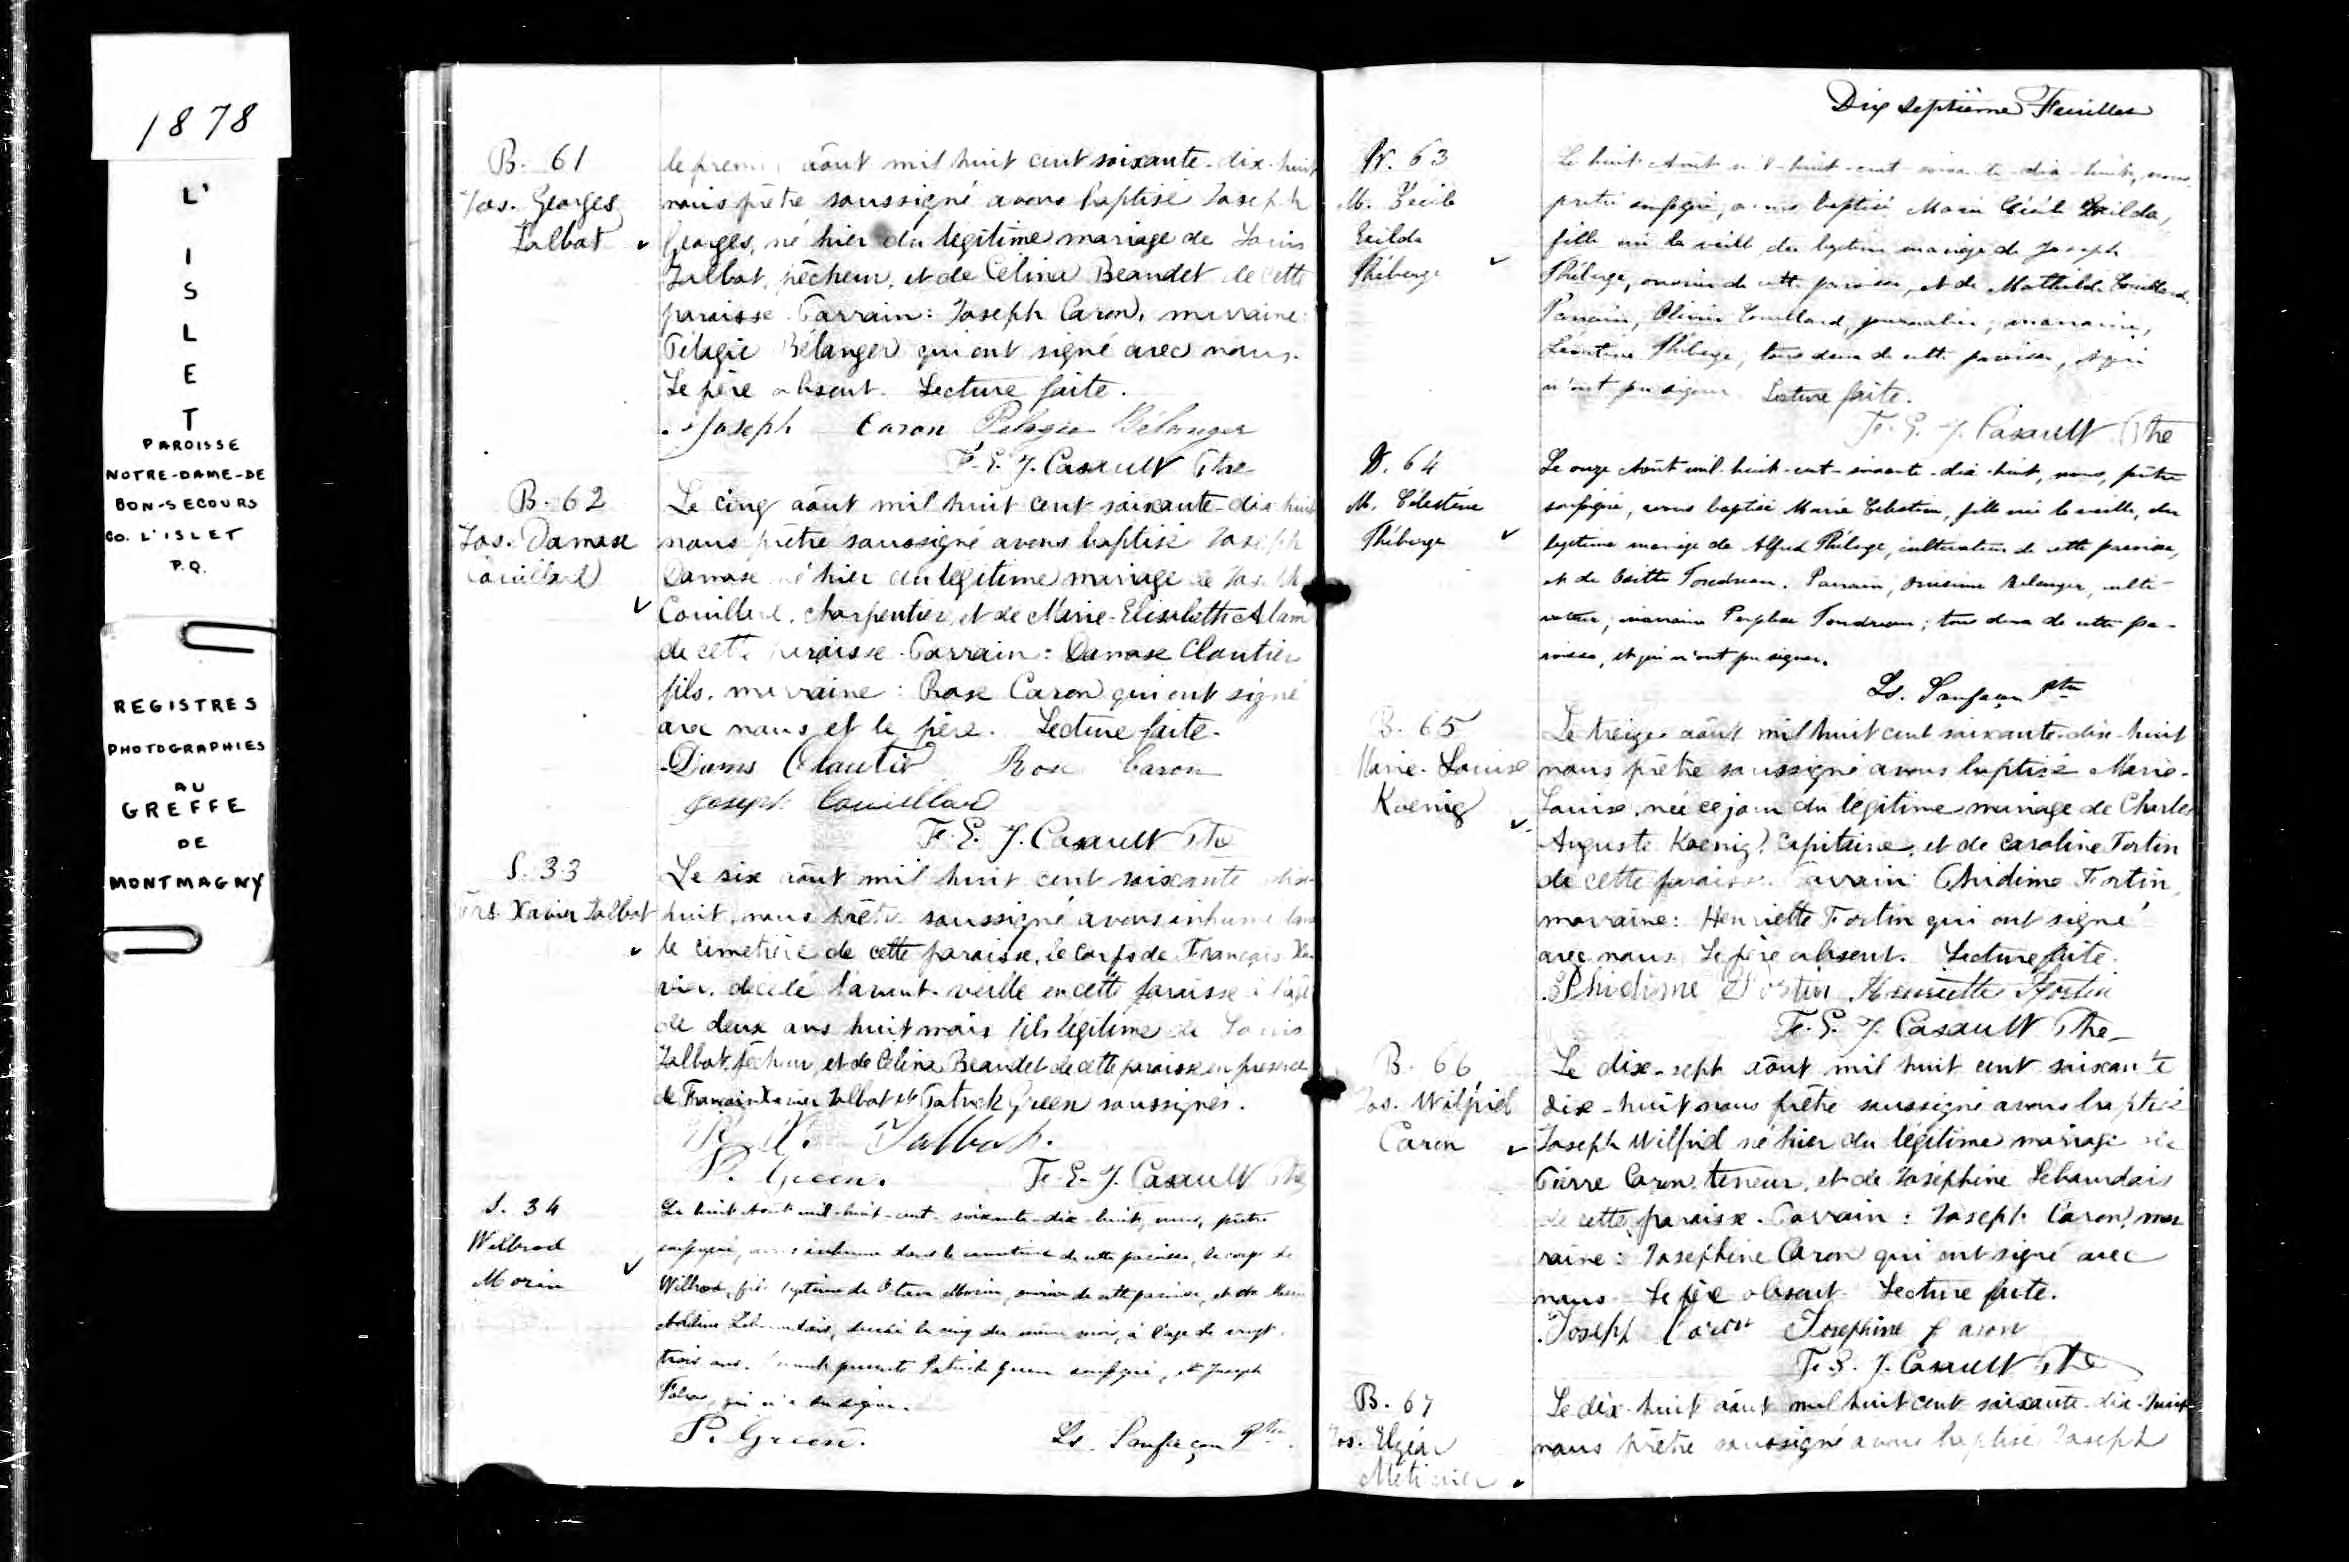 1878
L'
I
S
L
E
T
PAROISSE
NOTRE-DAME-DE
BON-SECOURS
CO. L'ISLET
P.Q.
REGISTRES
PHOTOGRAPHIES
AU
GREFFE
DE
MONTMAGNY
B. 61
Jos. Georges
Talbot
le premier août mil huit cent soixante-dix-huit
nous prêtre soussigné avons baptisé Joseph
Georges, né hier du légitime mariage de Louis
Talbot, pêcheur, et de Célina Beaudet de cette
paroisse. Parrain: Joseph Caron, marraine:
Pélagie Bélanger qui ont signé avec nous.
Le père absent. Lecture faite.
Joseph Caron Pélagie Bélanger
F. E. J. Casault Ptre
B. 62
Jos. Damase
Couillard
Le cinq août mil huit cent soixante-dix-huit
nous prêtre soussigné avons baptisé Joseph
Damase né hier du légitime mariage de Joseph
Couillard, charpentier, et de Marie-Elisabeth Adam
de cette paroisse. Parrain: Damase Cloutier
fils, marraine: Rose Caron qui ont signé
avec nous et le père. Lecture faite.
Dams Cloutier Rose Caron
Joseph Couillard
F. E. J. Casault Ptre
S. 33
Frs Xavier Talbot
Le six août mil huit cent soixante dix-
huit, nous prêtre soussigné avons inhumé dans
le cimetière de cette paroisse, le corps de François Xa-
vier, décédé l'avant-veille en cette paroisse à l'âge
de deux ans huit mois fils légitime de Louis
Talbot, pêcheur, et de Célina Beaudet de cette paroisse en présence
de François Xavier Talbot et Patrick Green soussignés.
F. X. Talbot.
P. Green. F. E. J. Casault Ptre
S. 34
Wilbrod
Morin
Le huit Août mil-huit-cent-soixante-dix-huit, nous, prêtre
soussigné, avons inhumé dans le cimetière de cette paroisse, le corps de
Wilbrod, fils légitime de Morin, de cette paroisse, et de
décédé le cinq du même mois, à l'âge de vingt-
trois ans. présents Patrick Green soussigné, et Joseph
qui n'a su signer.
P. Green. Ls. Sanfaçon Ptre
Dix septième Feuillet
B. 63
M. Cécile
Exilda
Théberge
Le huit Août mil-huit-cent-soixante-dix-huit, nous,
prêtre soussigné, avons baptisé Marie Cécile Exilda,
fille née la veille du légitime mariage de Joseph
Théberge, ouvrier de cette paroisse, et de Mathilde Couillard.
Parrain, Olivier Couillard, journalier; marraine,
Léontine Théberge, tous deux de cette paroisse, et qui
n'ont pu signer. Lecture faite.
F. E. J. Casault Ptre
B. 64
M. Célestine
Théberge
Le onze Août mil-huit-cent-soixante-dix-huit, nous, prêtre
soussigné, avons baptisé Marie Célestine, fille née la veille, du
légitime mariage de Alfred Théberge, cultivateur de cette paroisse,
et de Tondreau. Parrain, Onésime Bélanger, culti-
vateur; marraine Tondreau; tous deux de cette pa-
roisse, et qui n'ont pu signer.
Ls. Sanfaçon Ptre
B. 65
Marie-Louise
Koenig
Le treize août mil huit cent soixante-dix-huit
nous prêtre soussigné avons baptisé Marie-
Louise, née ce jour du légitime mariage de Charles
Auguste Koenig, Capitaine, et de Caroline Fortin
de cette paroisse. Parrain: Phidime Fortin,
marraine: Henriette Fortin qui ont signé
avec nous. Le père absent. Lecture faite.
Phidime Fortin Henriette Fortin
F. E. J. Casault Ptre
B. 66
Jos. Wilfrid
Caron
Le dix-sept août mil huit cent soixante
dix-huit nous prêtre soussigné avons baptisé
Joseph Wilfrid né hier du légitime mariage de
Pierre Caron, tanneur, et de Joséphine Lebourdais
de cette paroisse. Parrain: Joseph Caron, mar
raine: Joséphine Caron qui ont signé avec
nous. Le père absent. Lecture faite.
Joseph Caron Josephine Caron
F. E. J. Casault Ptre
B. 67
Jos. Elzéar
Métivier
Le dix-huit août mil huit cent soixante-dix-huit
nous prêtre soussigné avons baptisé Joseph